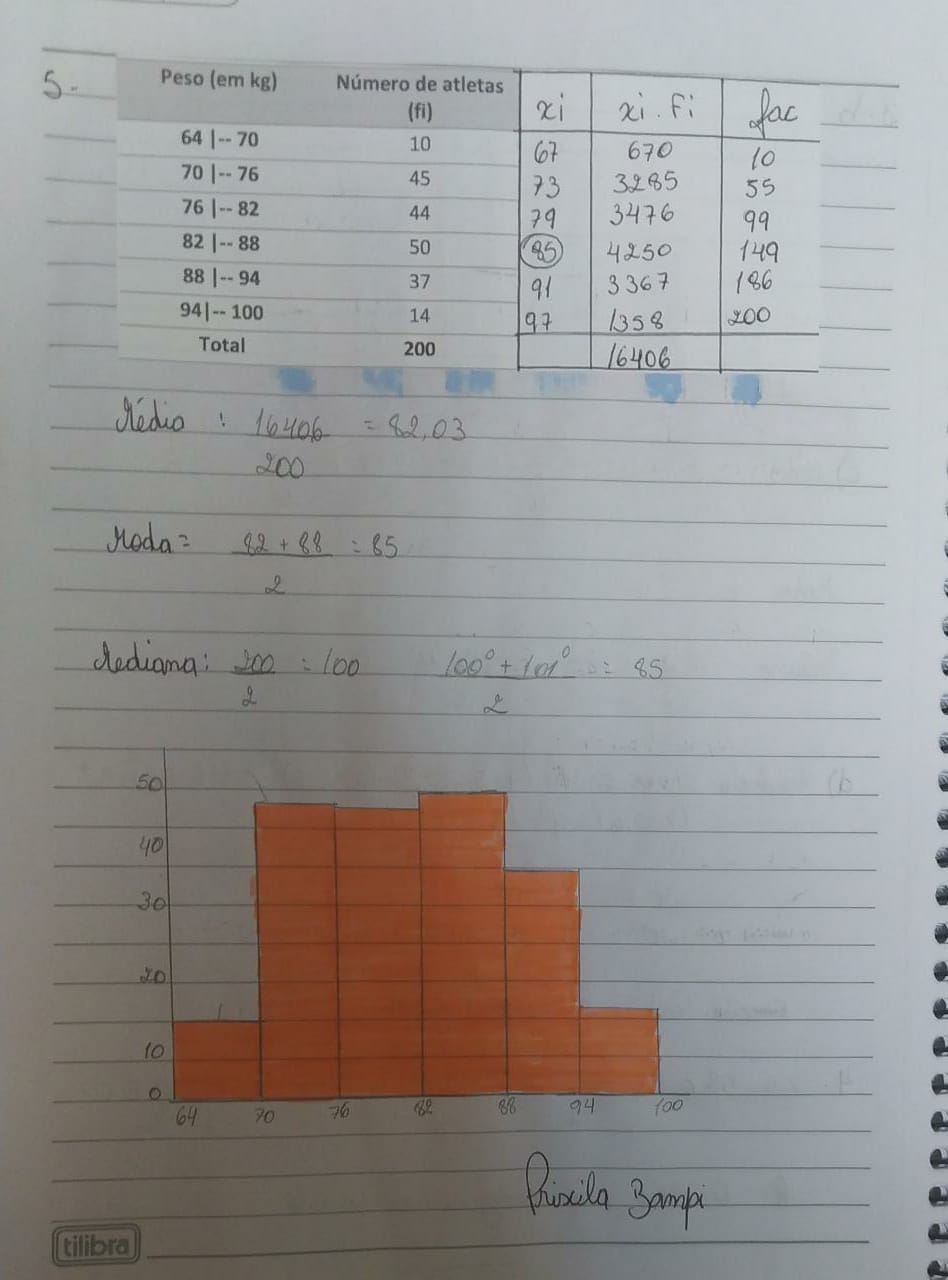 5.
Peso (em kg) Número de atletas (fi) xi xi . Fi fac
64 |-- 70 10 67 670 10
70 |-- 76 45 73 3285 55
76 |-- 82 44 79 3476 99
82 |-- 88 50 85 4250 149
88 |-- 94 37 91 3367 186
94|-- 100 14 97 1358 200
Total 200 16406
Médio : 16406 = 82,03
200
Moda = 82 + 88 = 85
2
Mediana: 200 = 100 100º + 101º = 85
2 2
50
40
30
20
10
0
64 70 76 82 88 94 100
Priscila Bampi
tilibra